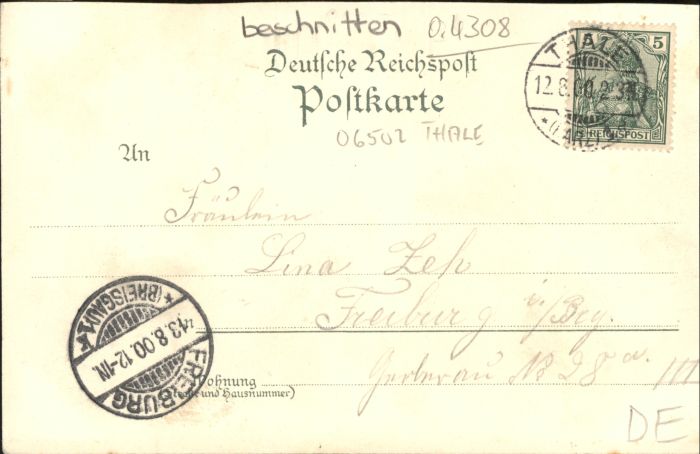 beschnitten 0.4308
Deutsche Reichspost
Postkarte
06502 THALE
THALE
12.8.00. 2-3N
*(HARZ)
5
REICHSPOST
An
Fräulein
Lina Zeh
Freiburg i/Brg.
Gerberau No 28 a. III
Wohnung
(Straße und Hausnummer)
*(BREISGAU)1*
13.8.00.12-1N.
FREIBURG
DE